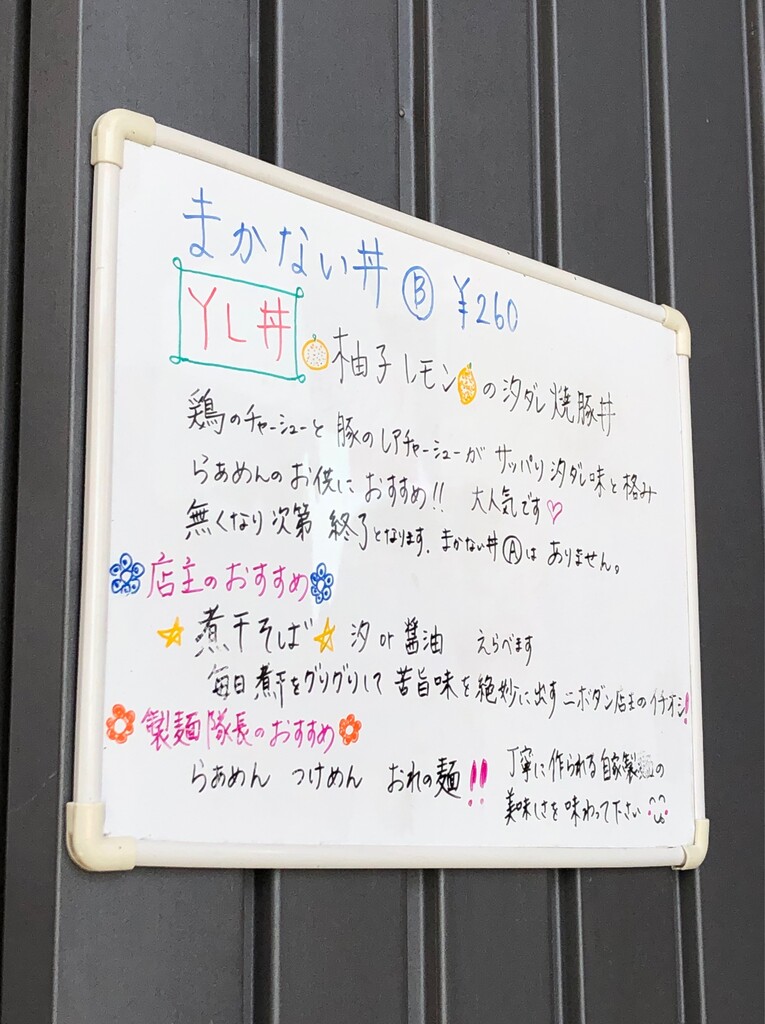 まかない丼 Ⓑ ¥260
YL丼 柚子レモンの汐ダレ焼豚丼
鶏のチャーシューと豚のレアチャーシューがサッパリ汐ダレ味と絡み
らぁめんのお供におすすめ!! 大人気です♡
無くなり次第 終了となります. まかない丼Ⓐはありません。
店主のおすすめ
☆煮干そば☆ 汐 or 醤油 えらべます
毎日煮干をグリグリして苦旨味を絶妙に出すニボダン店主のイチオシ!
製麺隊長のおすすめ
らぁめん つけめん おれの麺!! 丁寧に作られる自家製麺の
美味しさを味わって下さい